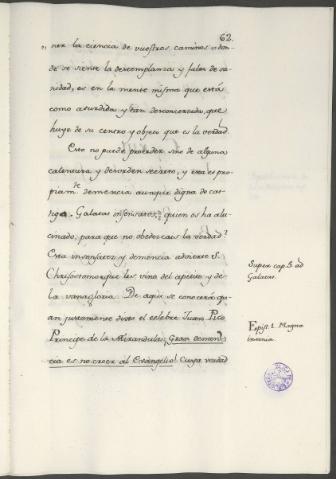 62.
" ner la ciencia de vuestros caminos: adon-
de se siente la destemplanza y falta de sa-
nidad, es en la mente misma que está
como aturdida y tan desconcertada, que
huye de su centro y objeto que es la verdad.
Esto no puede proceder sino de alguna
calentura y desorden secreto, y esta es pro-
piam.te demencia aunque digna de cas-
tigo. Galatas insensatos, quien os ha alu-
cinado, para que no obedezcais la verdad?
Esta insensatez y demencia advierte S.
Chrisostomo que les vino del apetito y de
la vanagloria. De aqui se conocerá qu-
an justamente dixo el celebre Juan Pico
Principe de la Mirandula: Gran demen-
cia es no creer al Evangelio! Cuya verdad
Super cap. 3 ad
Galatas.
Epist. 1. Magna
insania